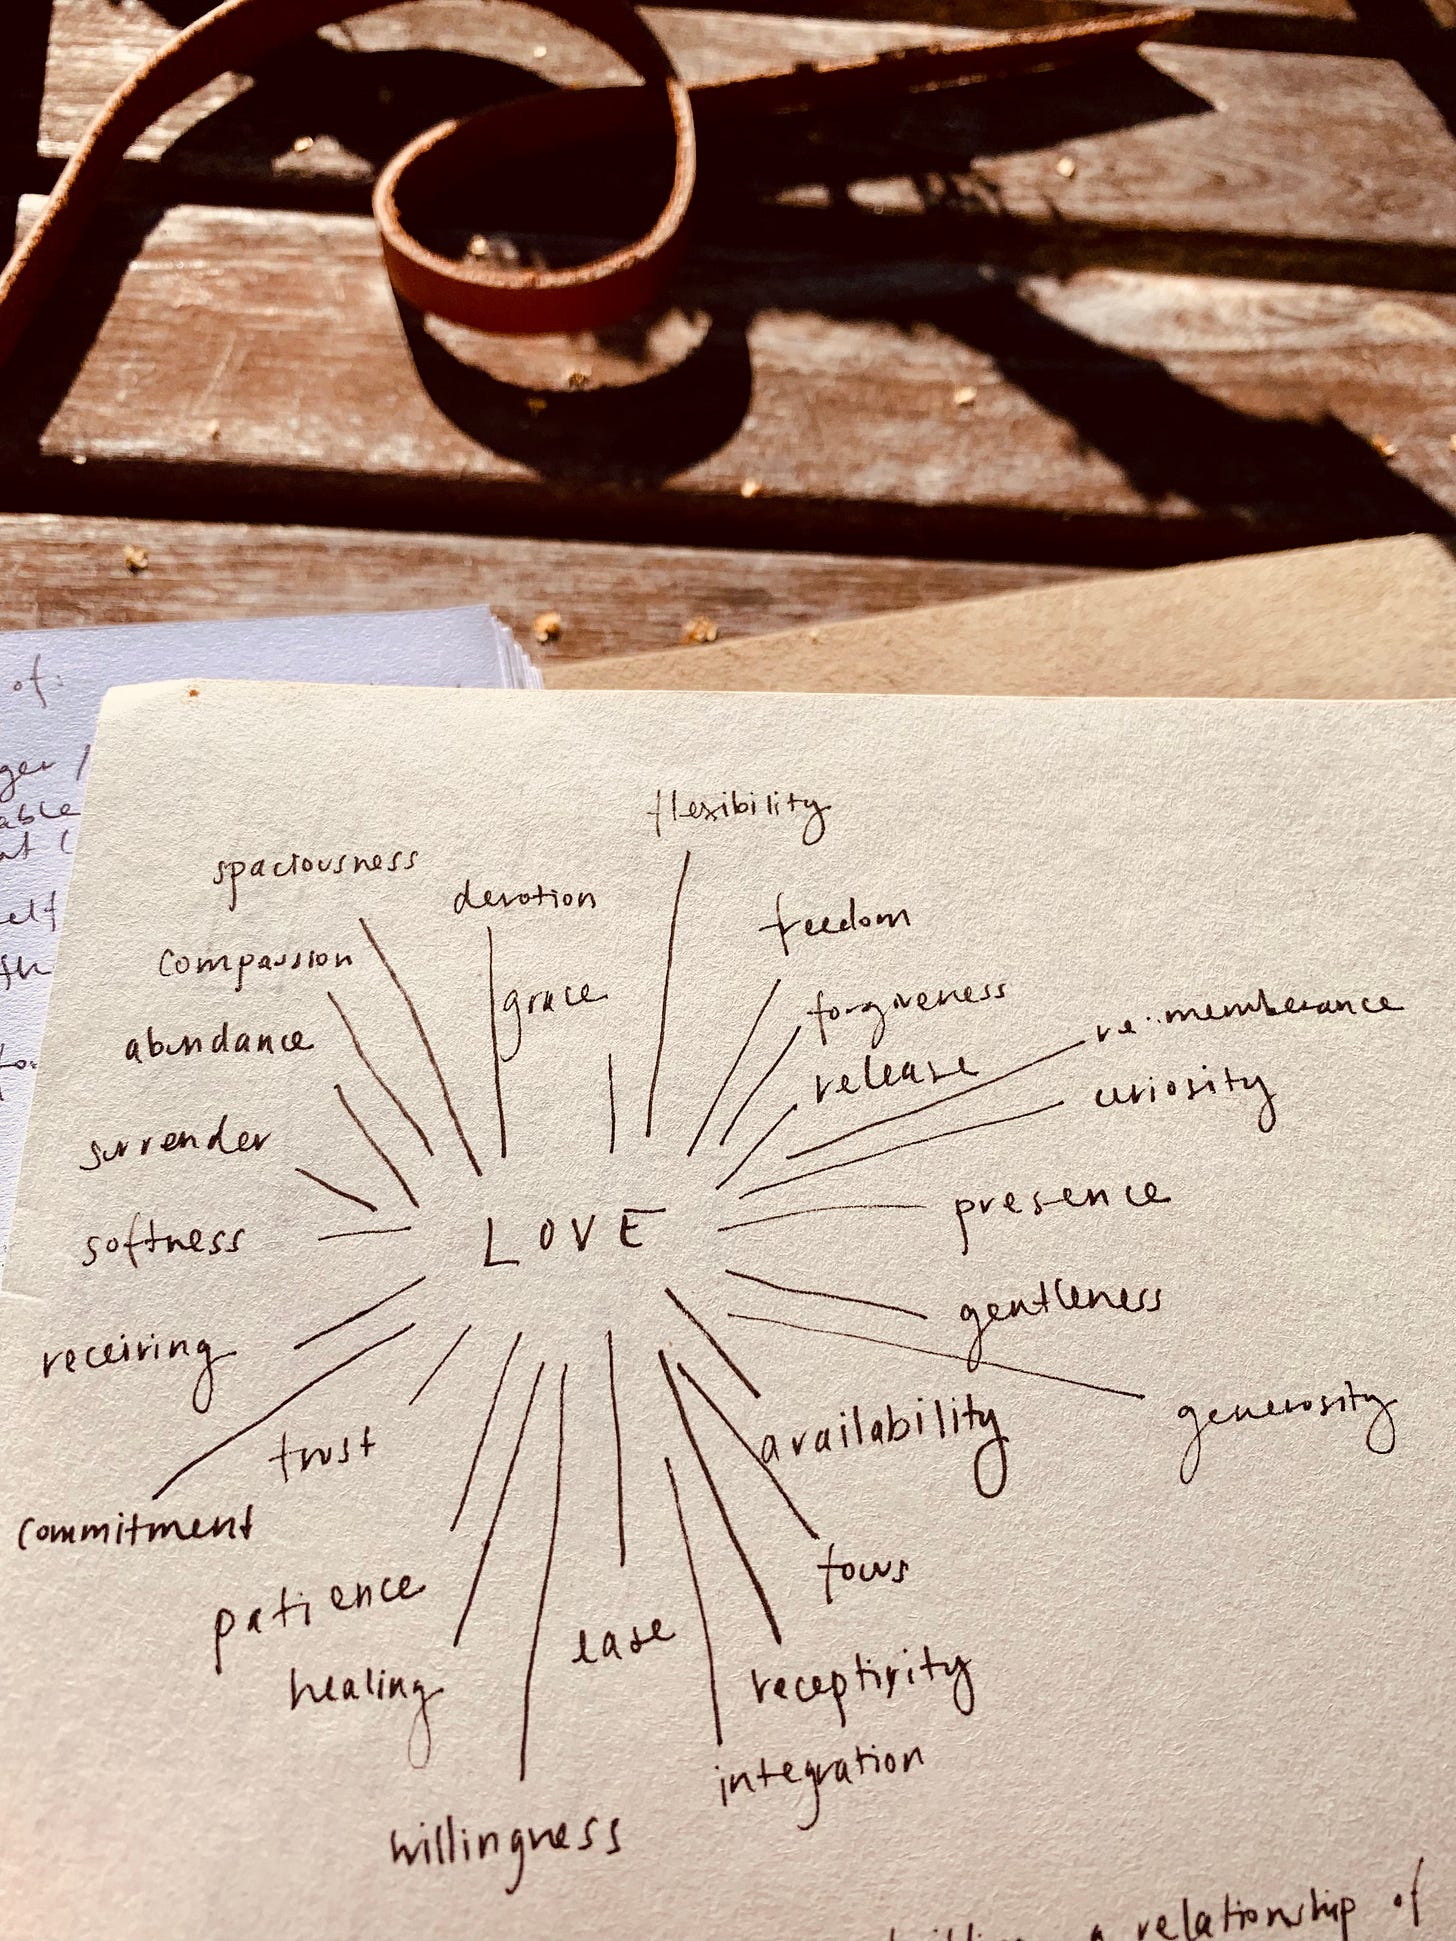 of:
flexibility
spaciousness
devotion
freedom
compassion
grace
forgiveness
re:memberance
abundance
release
curiosity
surrender
presence
softness
LOVE
gentleness
receiving
generosity
availability
trust
commitment
focus
patience
ease
healing
receptivity
integration
willingness
a relationship of